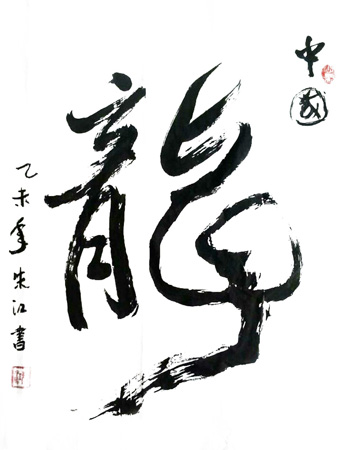 中国
龍
乙未年朱江書